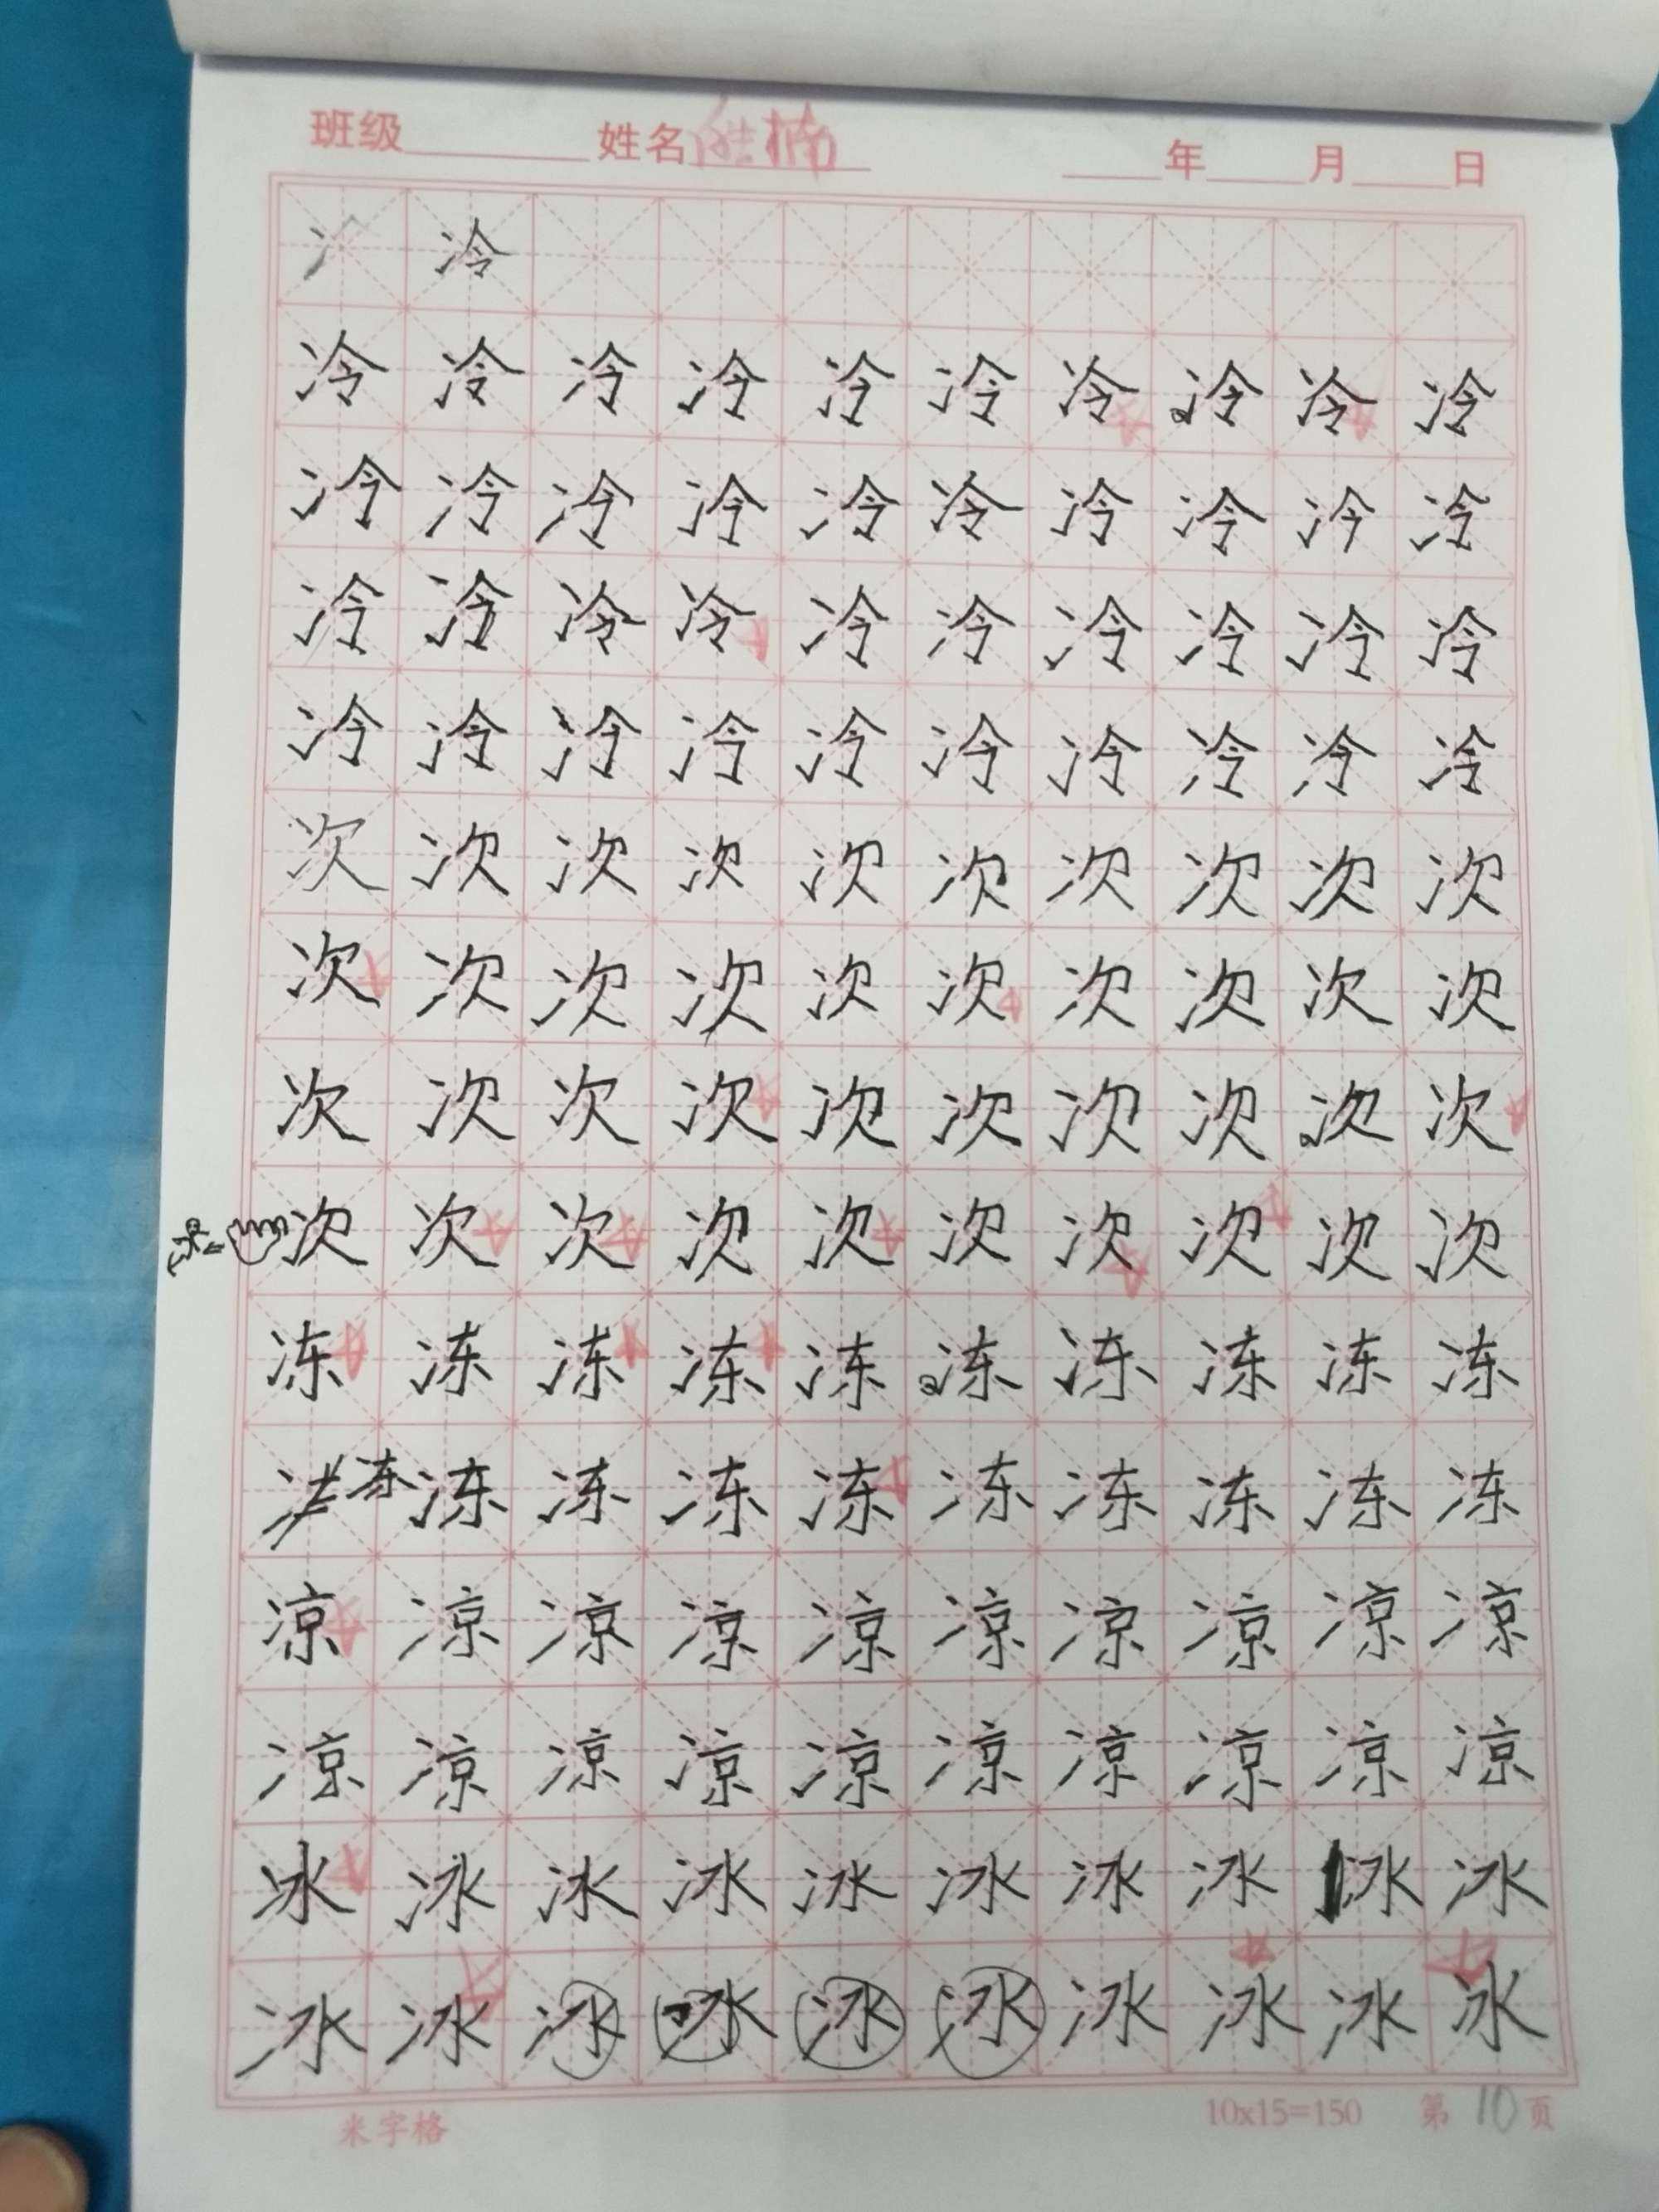 班级 姓名 楠 年 月 日
冫 冷
冷 冷 冷 冷 冷 冷 冷 冷 冷 冷
冷 冷 冷 冷 冷 冷 冷 冷 冷 冷
冷 冷 冷 冷 冷 冷 冷 冷 冷 冷
冷 冷 冷 冷 冷 冷 冷 冷 冷 冷
次 次 次 次 次 次 次 次 次 次
次 次 次 次 次 次 次 次 次 次
次 次 次 次 次 次 次 次 次 次
次 次 次 次 次 次 次 次 次 次
冻 冻 冻 冻 冻 冻 冻 冻 冻 冻
冻 冻 冻 冻 冻 冻 冻 冻 冻 冻
凉 凉 凉 凉 凉 凉 凉 凉 凉 凉
凉 凉 凉 凉 凉 凉 凉 凉 凉 凉
冰 冰 冰 冰 冰 冰 冰 冰 冰 冰
冰 冰 冰 冰 冰 冰 冰 冰 冰 冰
米字格 10x15=150 第10页